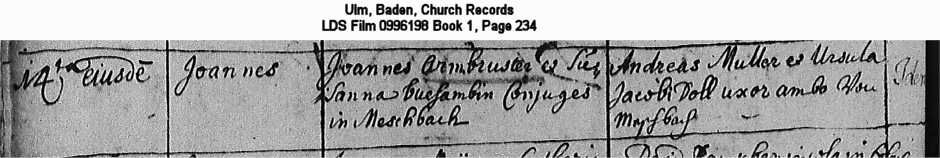 Ulm, Baden, Church Records
LDS Film 0996198 Book 1, Page 234
14ta eiusdē
Joannes
Joannes Armbruster et Su=
sanna buesambin Conjuges
in Meschbach
Andreas Muller et Ursula
Jacobi Doll uxor ambo Von
Mäschbach
Idem